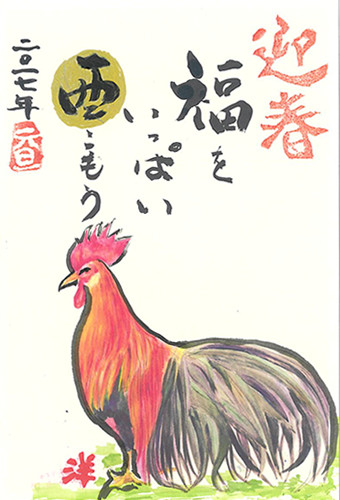 迎春
福を
いっぱい
酉こもう
二〇一七年
洋